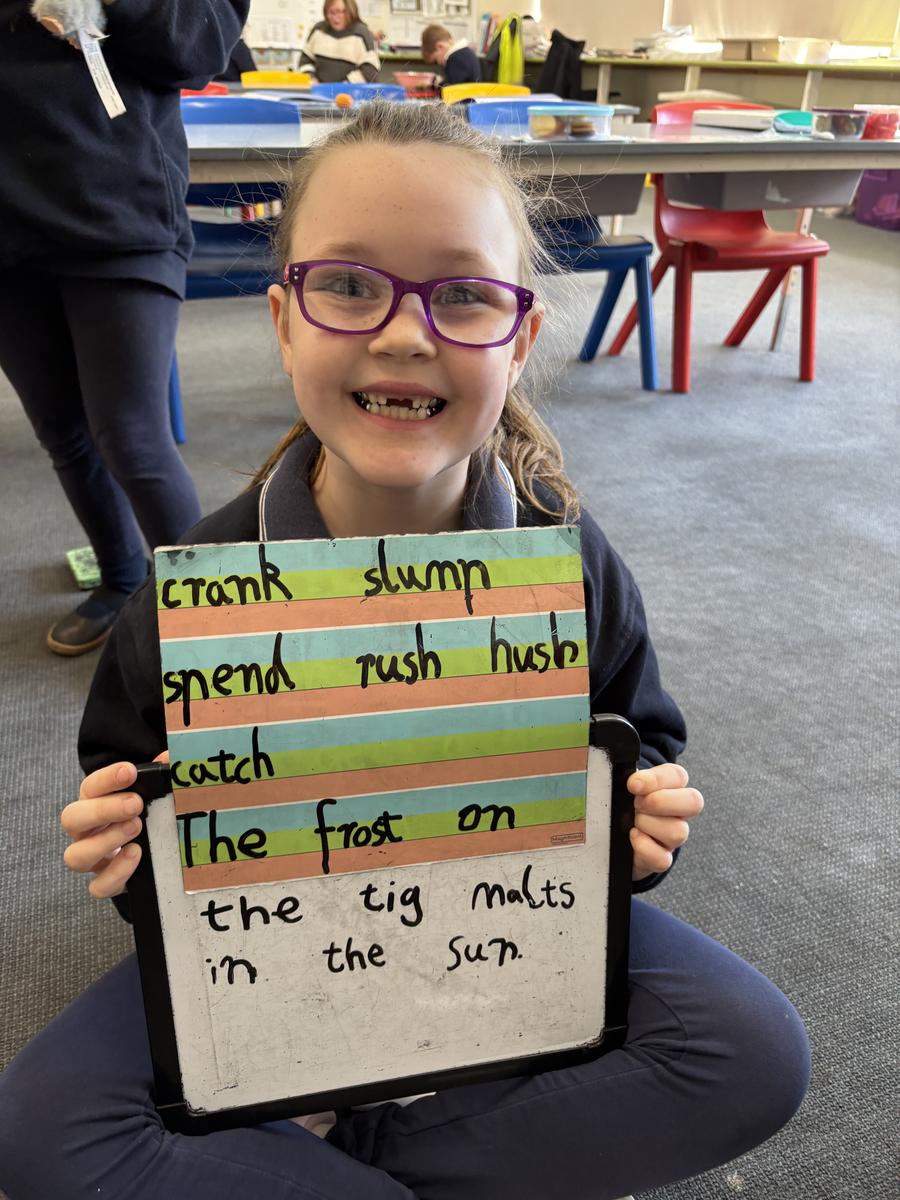 crank slump
spend rush hush
catch
The frost on
the tig malts
in the sun.